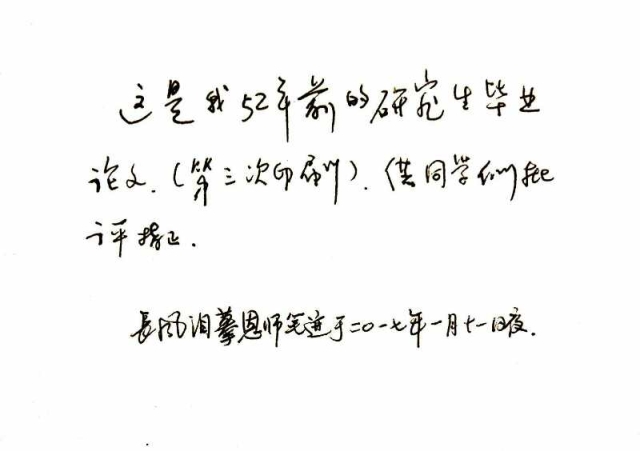 这是我52年前的研究生毕业
论文.(第三次印刷).供同学们批
评指正.
長风泪摹恩师笔迹于二〇一七年一月十一日夜.